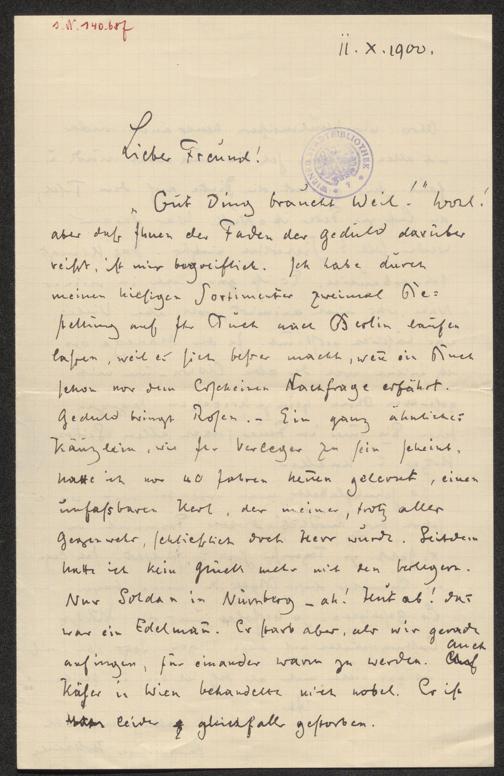 J. N. 140.687
11. X. 1900.
WIENER STADTBIBLIOTHEK
Lieber Freund!
„Gut Ding braucht Weil!“ wohl!
aber daß Ihnen der Faden der Geduld darüber
reißt, ist mir begreiflich. Ich habe durch
meinen hiesigen Sortimenter zweimal Be=
stellung auf Ihr Buch nach Berlin laufen
lassen, weil es sich besser macht, wen̄ ein Buch
schon vor dem Erscheinen Nachfrage erfährt.
Geduld bringt Rosen. – Ein ganz ähnliches
Känzlein, wie Ihr Verleger zu sein scheint,
hatte ich vor 40 Jahren ken̄en gelernt, einen
unfaßbaren Kerl, der meiner, trotz aller
Gegenwehr, schließlich doch Herr wurde. Seitdem
hatte ich kein Glück mehr mit den Verlegern.
Nur Soldan in Nürnberg – ah! Hut ab! das
war ein Edelman̄. Er starb aber, als wir gerade
anfingen, für einander warm zu werden. Auch
Käser in Wien behandelte mich nobel. Er ist
leider gleichfalls gestorben.